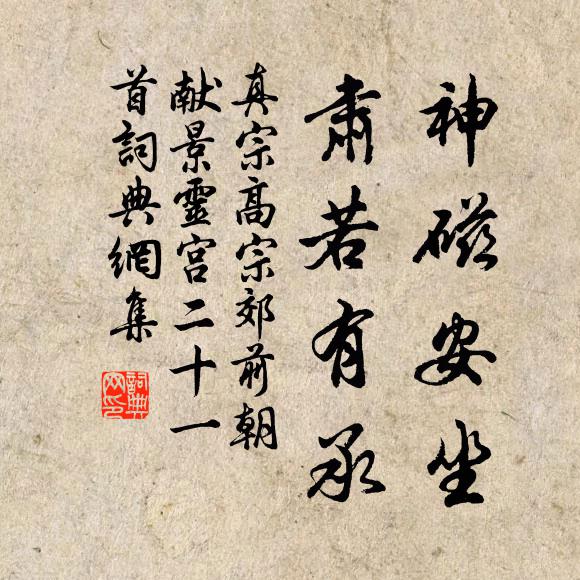 神磁安坐
肅若有承
真宗高宗郊前朝
献景靈宮二十一
首詞典網集
詞典
网印